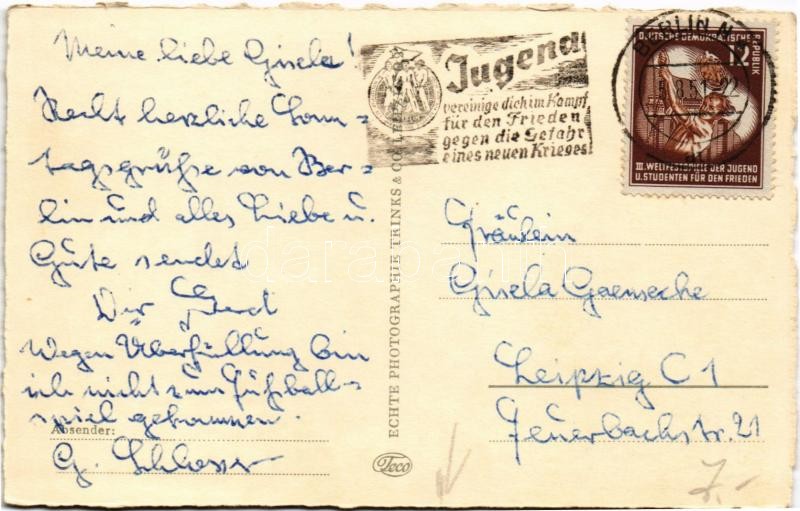 Meine liebe Gisela!
Recht herzliche Sonn-
tagsgrüße von Ber-
lin und alles Liebe u.
Gute sendet
Dir Gerd
Wegen Überfüllung bin
ich nicht zum Fußball-
spiel gekommen.
Absender:
G. Schlosser
ECHTE PHOTOGRAPHIE TRINKS & CO LEIPZIG
Teco
Jugend
vereinige dich im Kampf
für den Frieden
gegen die Gefahr
eines neuen Krieges
BERLIN N
8.51
DEUTSCHE DEMOKRATISCHE REPUBLIK
12
III. WELTFESTSPIELE DER JUGEND
U. STUDENTEN FÜR DEN FRIEDEN
Fräulein
Gisela Gaensecke
Leipzig C 1
Feuerbachstr. 21
7.-
darabanth